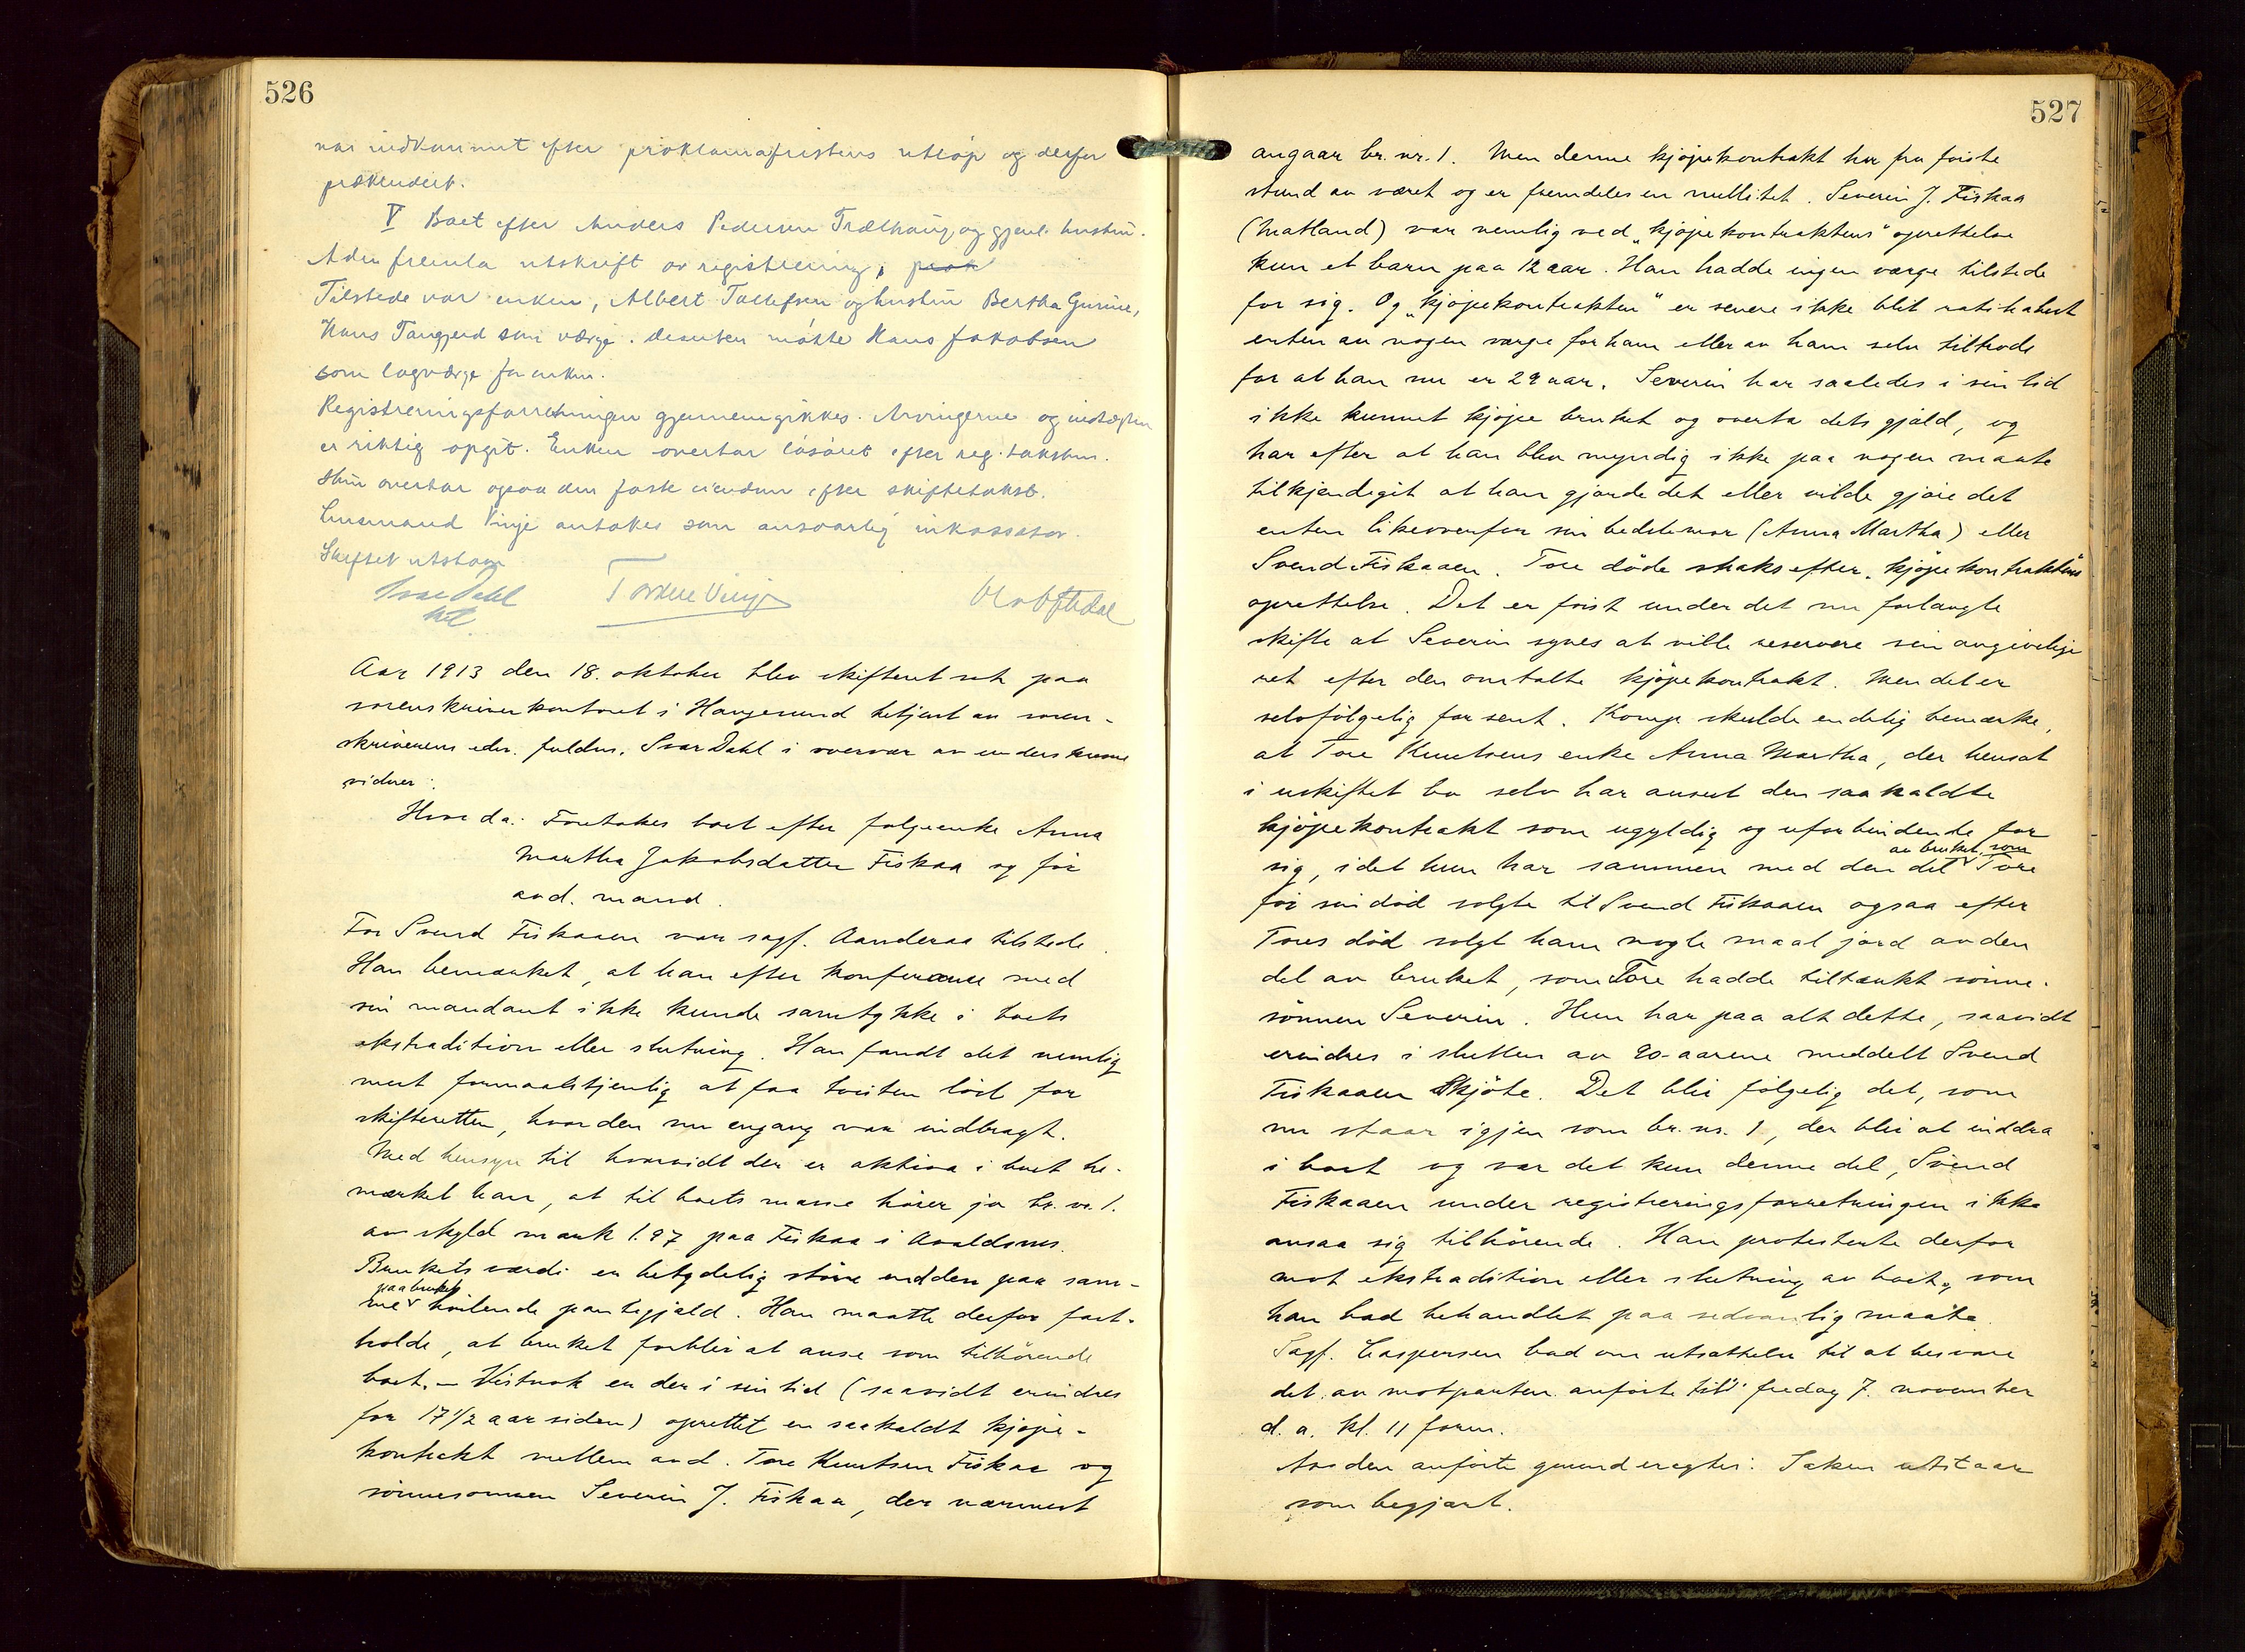 526
var indkommet efter proklamafristens utløp og derfor
prækludert.
V Boet efter Anders Pedersen Trælhaug og gjenl. hustru.
Aden fremla utskrift av registrering, prok
Tilstede var enken, Albert Tollefsen og hustru Bertha Gurine,
Hans Tangjerd som værge. desuten møtte Hans Jakobsen
som lagværge for enken.
Registreringsforretningen gjennemgikkes. Arvingerne og
er riktig opgit. Enken overtar løsøret efter reg. taksten.
Hun overtar ogsaa den faste eiendom efter skiftetakst.
Lensmand Vinje antokes som ansvarlig inkassator.
Skiftet utstaar
Ivar Dahl
Torkel Vinje
Aar 1913 den 18. oktober blev skifteret sat paa
sorenskriverkontoret i Haugesund betjent av soren-
skriverens edsv. fuldm. Ivar Dahl i overvær av underskrevne
vidner:
Hvor da: Foretokes boet efter følgeenke Anna
Martha Jakobsdatter Fiskaa og før
avd. mand.
For Svend Fiskaaen var sagf. Aanderaa tilstede.
Han bemerket, at han efter konferance med
sin mandant ikke kunde samtykke i boets
ekstradition eller slutning. Han fandt det nemlig
mest formaalstjenlig at faa tvisten løst for
skifteretten, hvor den nu engang var indbragt.
Med hensyn til hvorvidt der er aktiva i boet be-
merket han, at til boets masse hører jo br. nr. 1.
av skyld mark 1.97 paa Fiskaa i Avaldsnes.
Brukets værdi er betydelig større end den paa sam-
paa bruket
me hvilende pantegjæld. Han maatte derfor fast-
holde, at bruket forblir at anse som tilhørende
boet. – Vistnok er der i sin tid (saavidt erindres
for 17 1/2 aar siden) oprettet en saakaldt kjøpe-
kontrakt mellem avd. Tore Knutsen Fiskaa og
sønnesønnen Severin J. Fiskaa, der nærmest
527
angaar br. nr. 1. Men denne kjøpekontrakt har fra første
stund av været og er fremdeles en nullitet. Severin J. Fiskaa
(Matland) var nemlig ved „kjøpekontraktens" oprettelse
kun et barn paa 12 aar. Han hadde ingen værge tilstede
for sig. Og „kjøpekontrakten" er senere ikke blit ratihabert
enten av nogen værge for ham eller av ham selv tiltrods
for at han nu er 29 aar. Severin har saaledes i sin tid
ikke kunnet kjøpe bruket og overta dets gjæld, og
har efter at han blev myndig ikke paa nogen maate
tilkjendegit at han gjorde det eller vilde gjøre det
enten likeoverfor sin bedstemor (Anna Martha) eller
Svend Fiskaaen. Tore døde straks efter „kjøpekontraktens
oprettelse. Det er først under det nu forlangte
skifte at Severin synes at ville reservere sin angivelige
ret efter den omtalte kjøpekontrakt. Men det er
selvfølgelig for sent. Komp. skulde endelig bemærke,
at Tore Knutsens enke Anna Martha, der hensat
i uskiftet bo selv har anseet den saakaldte
kjøpekontrakt som ugyldig og uforbindende for
av bruket, som
sig, idet hun har sammen med den del Tore
før sin død solgte til Svend Fiskaaen ogsaa efter
Tores død solgt ham nogle maal jord av den
del av bruket, som Tore hadde tiltænkt sønne-
sønnen Severin. Hun har paa alt dette, saavidt
erindres i slutten av 90-aarene meddelt Svend
Fiskaaen Skjøte. Det blir følgelig det, som
nu staar igjen som br. nr. 1, der blir at inddra
i boet og var det kun denne del, Svend
Fiskaaen under registreringsforretningen ikke
ansaa sig tilhørende. Han protesterte derfor
mot ekstradition eller slutning av boet, som
han bad behandlet paa sedvanlig maate.
Sagf. Caspersen bad om utsættelse til at besvare
det av motparten anførte til fredag 7. november
d. a. kl. 11 form.
Av den anførte grund eragtes: Saken utstaar
som begjært.